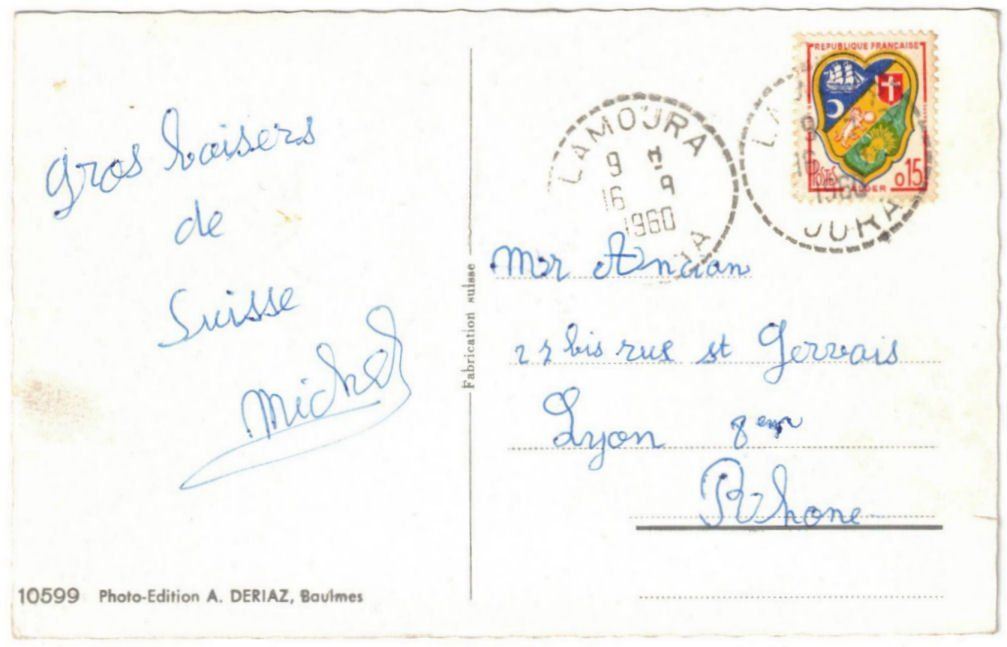 gros baisers
de
Suisse
Michel
10599 Photo-Edition A. DERIAZ, Baulmes
Fabrication suisse
REPUBLIQUE FRANÇAISE
POSTES ALGER 0.15
LAMOURA
9 H
16 9
1960
JURA
LA
9
16
1960
JURA
Mer Ancian
27 bis rue st Gervais
Lyon 8eme
Rhone